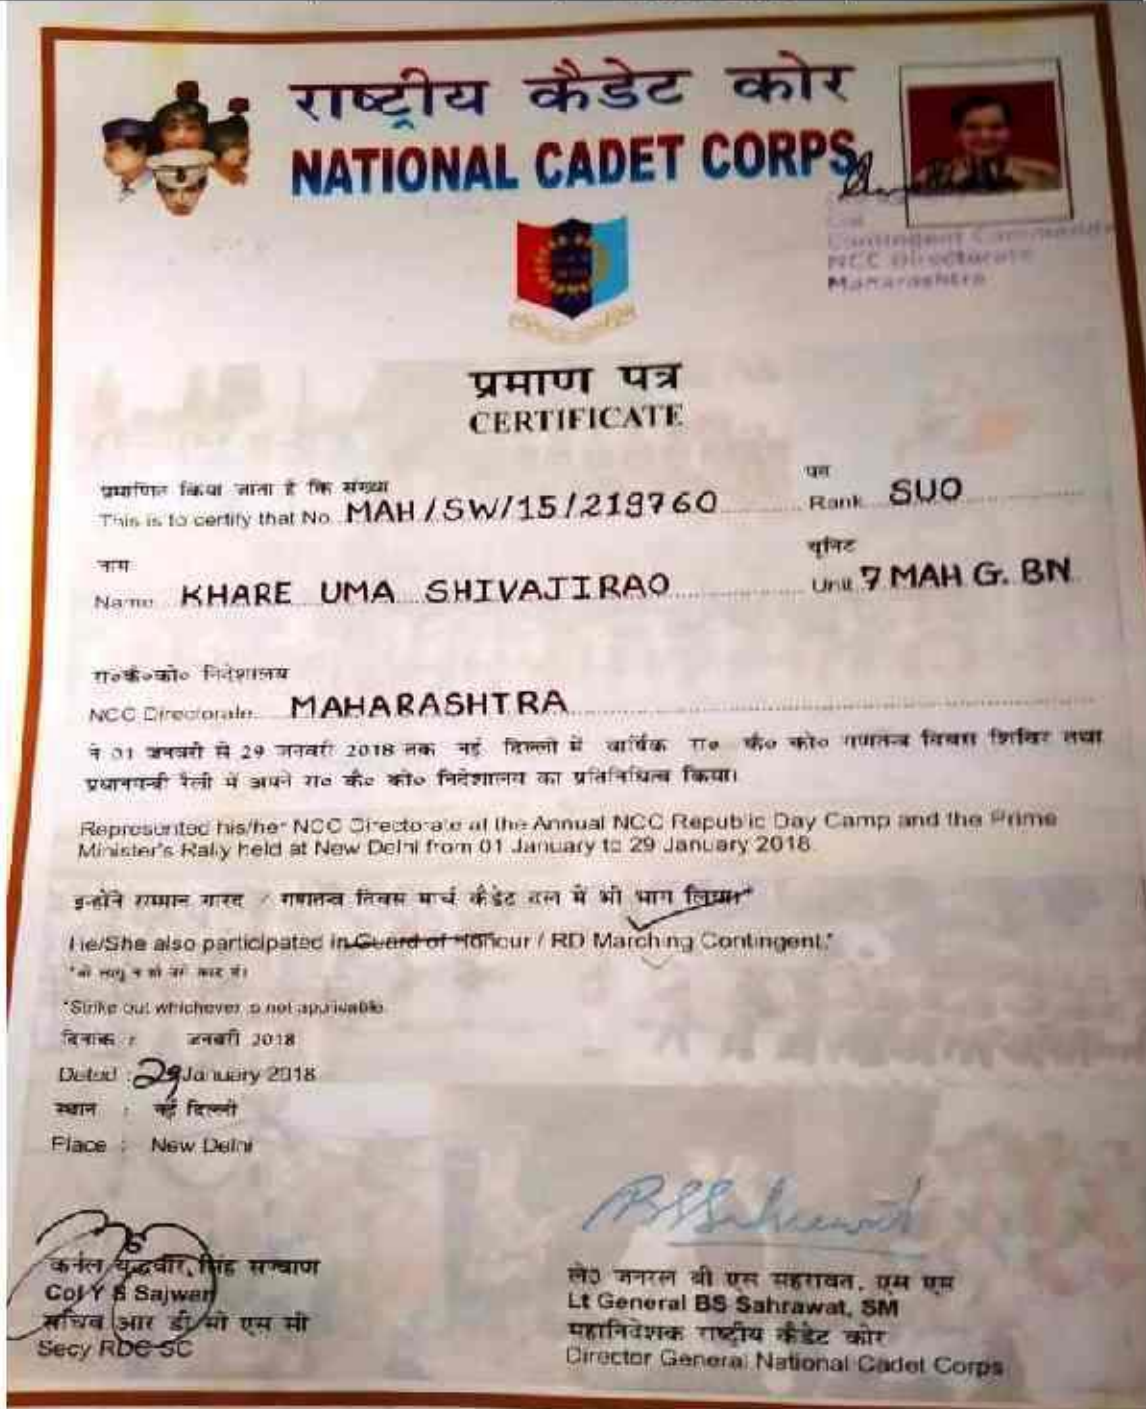 राष्ट्रीय कैडेट कोर
NATIONAL CADET CORPS
Contingent Commander
NCC Directorate
Maharashtra
प्रमाण पत्र
CERTIFICATE
प्रमाणित किया जाता है कि संख्या
This is to certify that No. MAH/SW/15/219760
पद
Rank SUO
नाम
Name KHARE UMA SHIVAJIRAO
यूनिट
Unit 7 MAH G. BN
रा०कै०को० निदेशालय
NCC Directorate MAHARASHTRA
ने 01 जनवरी से 29 जनवरी 2018 तक नई दिल्ली में वार्षिक रा० कै० को० गणतन्त्र दिवस शिविर तथा
प्रधानमन्त्री रैली में अपने रा० कै० को० निदेशालय का प्रतिनिधित्व किया।
Represented his/her NCC Directorate at the Annual NCC Republic Day Camp and the Prime
Minister's Rally held at New Delhi from 01 January to 29 January 2018.
इन्होंने सम्मान गारद / गणतन्त्र दिवस मार्च कैडेट दल में भी भाग लिया।*
He/She also participated in Guard of Honour / RD Marching Contingent.*
*जो लागू न हो उसे काट दें।
*Strike out whichever is not applicable.
दिनांक : जनवरी 2018
Dated : 29 January 2018
स्थान : नई दिल्ली
Place : New Delhi
BSSahrawat
कर्नल युद्धवीर सिंह सज्वाण
Col Y S Sajwan
सचिव आर डी सी एस सी
Secy RDC SC
ले० जनरल बी एस सहरावत, एस एम
Lt General BS Sahrawat, SM
महानिदेशक राष्ट्रीय कैडेट कोर
Director General National Cadet Corps